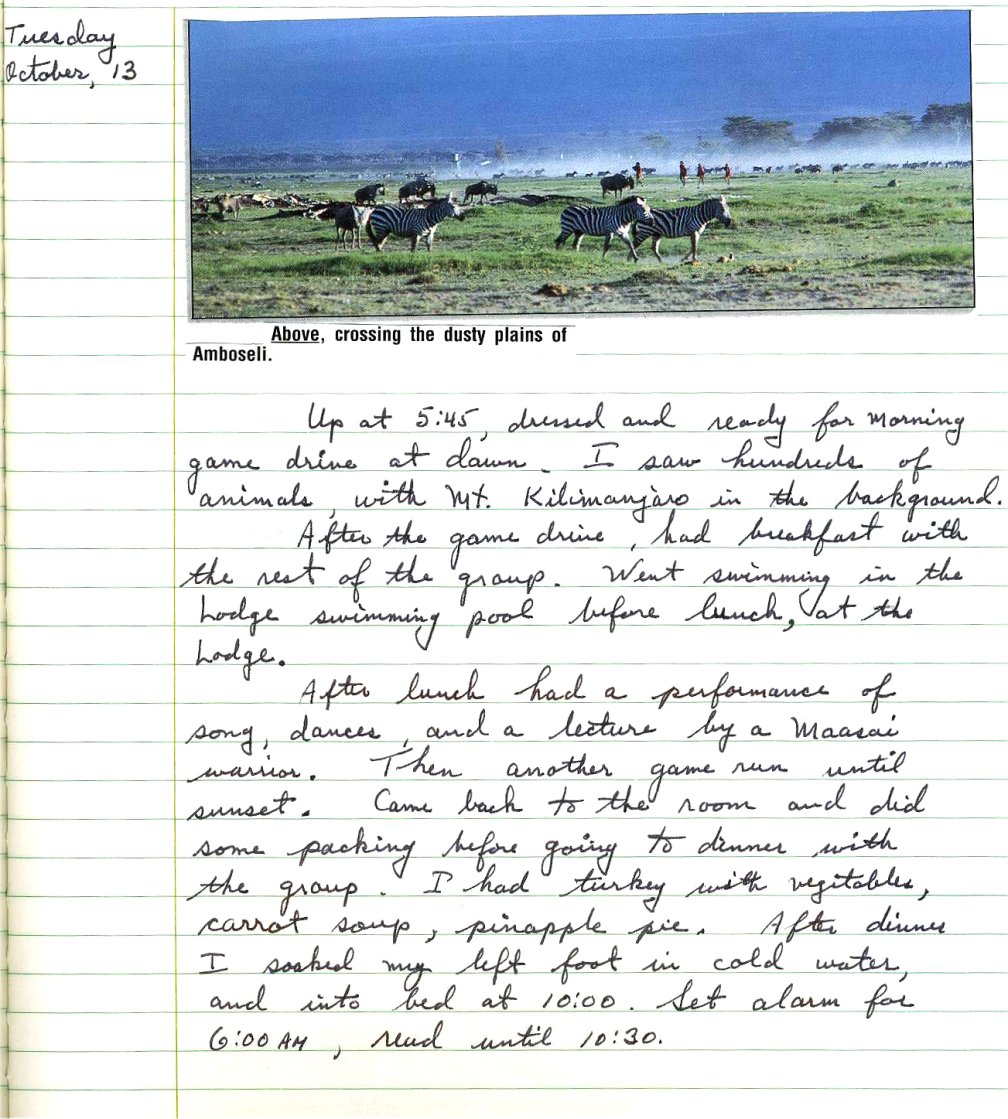 Tuesday
October, 13
Above, crossing the dusty plains of
Amboseli.
Up at 5:45, dressed and ready for morning
game drive at dawn. I saw hundreds of
animals, with Mt. Kilimanjaro in the background.
After the game drive, had breakfast with
the rest of the group. Went swimming in the
Lodge swimming pool before lunch, at the
Lodge.
After lunch had a performance of
song, dances, and a lecture by a Maasai
warrior. Then another game run until
sunset. Came back to the room and did
some packing before going to dinner with
the group. I had turkey with vegitables,
carrot soup, pinapple pie. After dinner
I soaked my left foot in cold water,
and into bed at 10:00. Set alarm for
6:00 AM, read until 10:30.